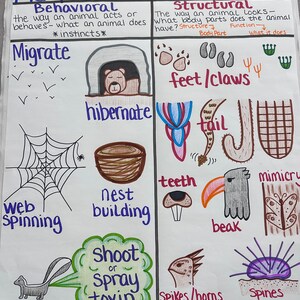 Behavioral
(the way an animal acts or
behaves - what an animal does
*instincts*
Structural
(The way an animal looks -
what body parts does the animal
have? Structure - Function -
Body Part what it does
Migrate
hibernate
feet/claws
tail
web
spinning
nest
building
teeth
beak
mimicry
shoot
or
spray
toxin
spikes/horns
spines